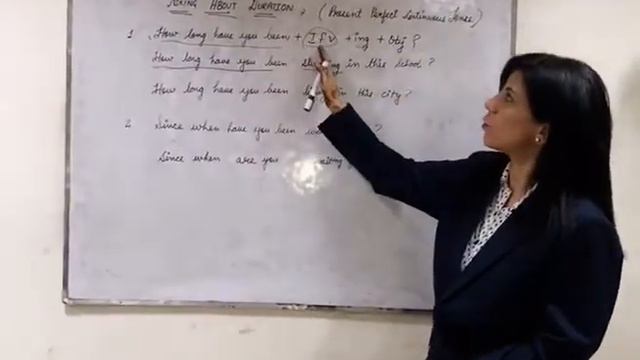 ASKING ABOUT DURATION → (Present Perfect Continuous Tense)
1. How long have you been + IFV + ing + Obj ?
How long have you been in this school ?
How long have you been in this city ?
2. Since when have you been ?
Since when are you